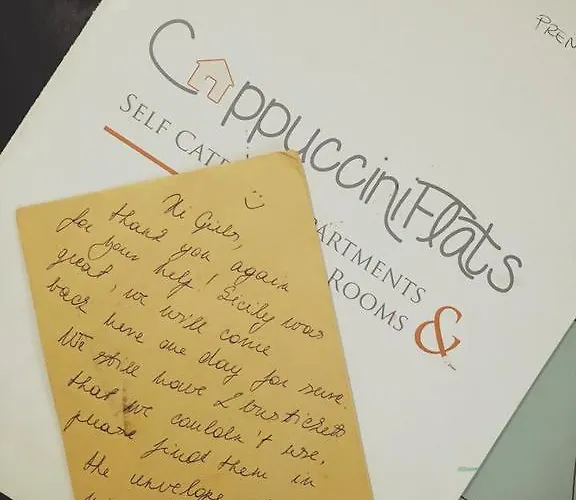 PREN
CappucciniFlats
SELF CATE
PARTMENTS &
ROOMS
Hi Girls,
thank you again
for your help! Sicily was
great, we will come
back here one day for sure.
We still have 2 bus tickets
that we couldn't use,
please find them in
the envelope